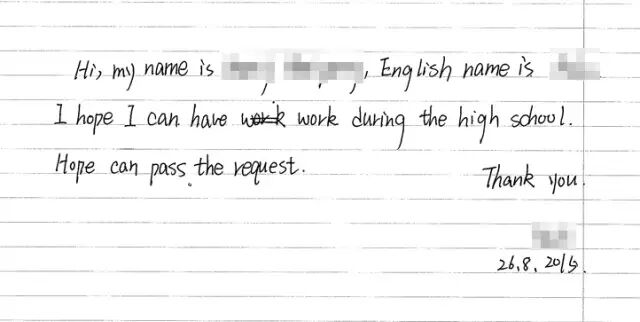 Hi, my name is , English name is
I hope I can have work work during the high school.
Hope can pass the request.
Thank you.
26.8.2015.